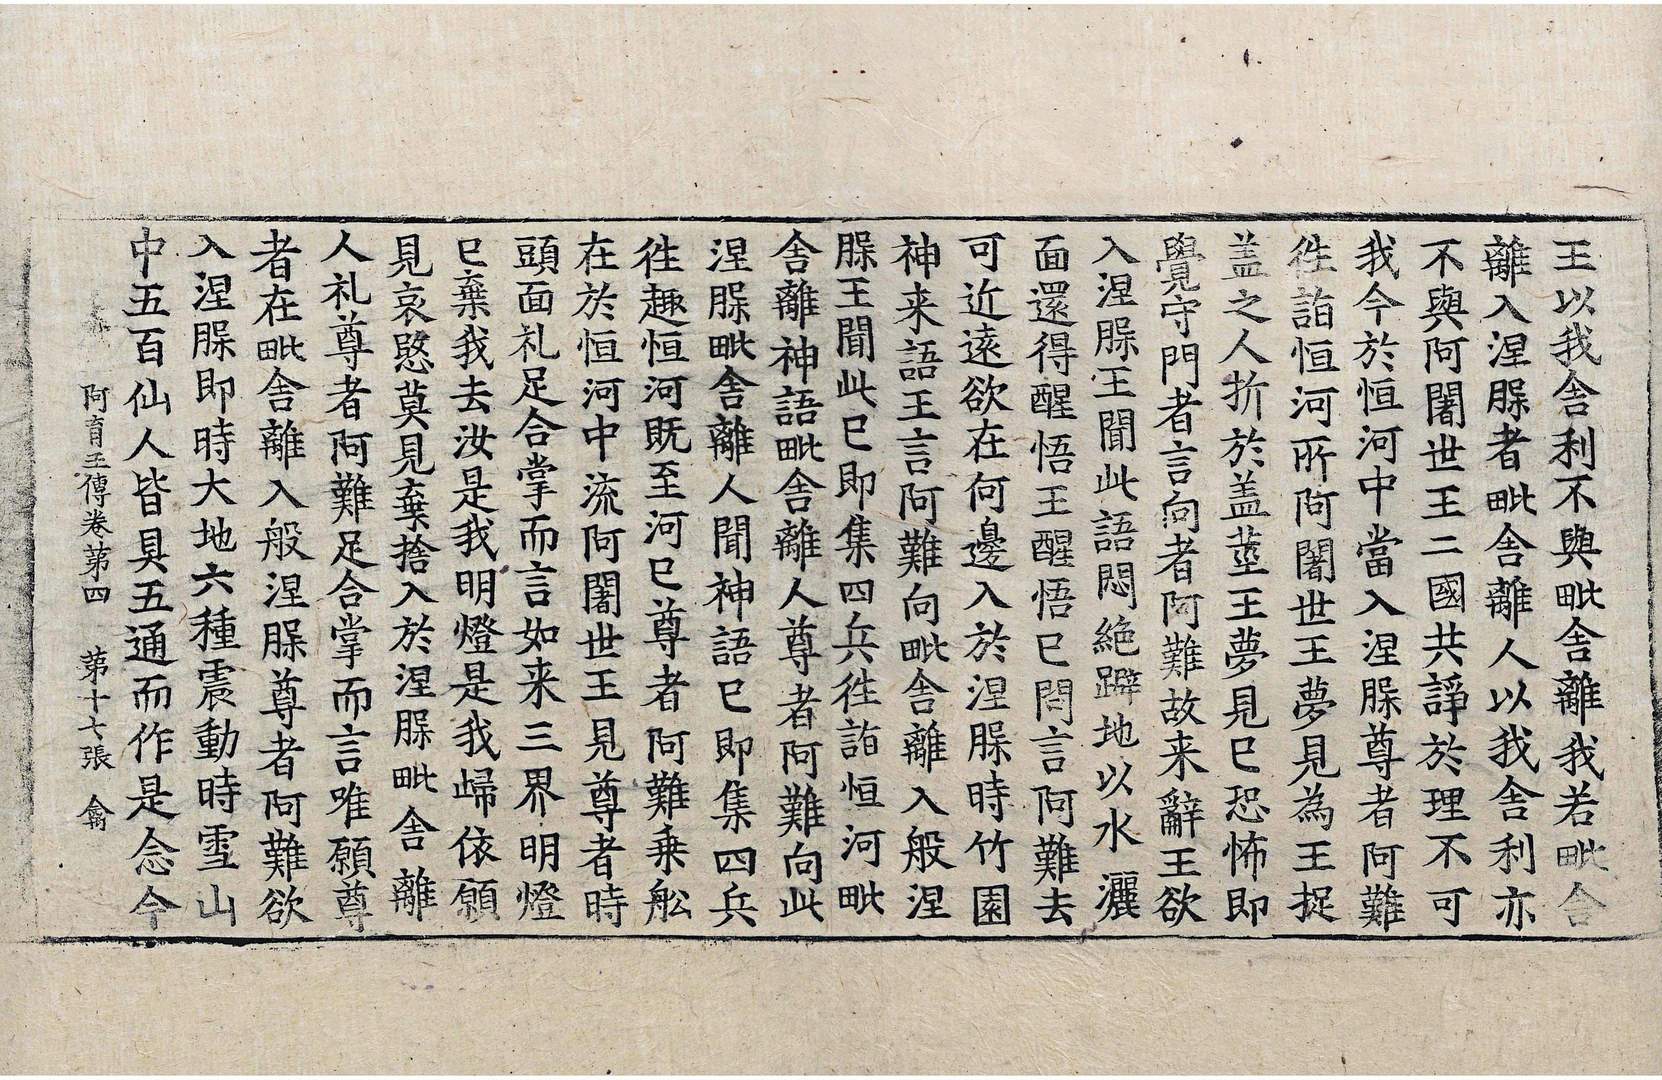 王以我舍利不與毗舍離我若毗舍
離入涅脲者毗舍離人以我舍利亦
不與阿闍世王二國共諍於理不可
我今於恒河中當入涅脲尊者阿難
徃詣恒河所阿闍世王夢見為王捉
盖之人折於盖莖王夢見已恐怖即
覺守門者言向者阿難故来辭王欲
入涅脲王聞此語悶絶躃地以水灑
面還得醒悟王醒悟已問言阿難去
可近遠欲在何邊入於涅脲時竹園
神来語王言阿難向毗舍離入般涅
脲王聞此已即集四兵徃詣恒河毗
舍離神語毗舍離人尊者阿難向此
涅脲毗舍離人聞神語已即集四兵
徃趣恒河既至河已尊者阿難乗舩
在於恒河中流阿闍世王見尊者時
頭面礼足合掌而言如来三界明燈
已棄我去汝是我明燈是我歸依願
見哀愍莫見棄捨入於涅脲毗舍離
人礼尊者阿難足合掌而言唯願尊
者在毗舍離入般涅脲尊者阿難欲
入涅脲即時大地六種震動時雪山
中五百仙人皆具五通而作是念今
阿育王傳卷第四 第十七張 龠